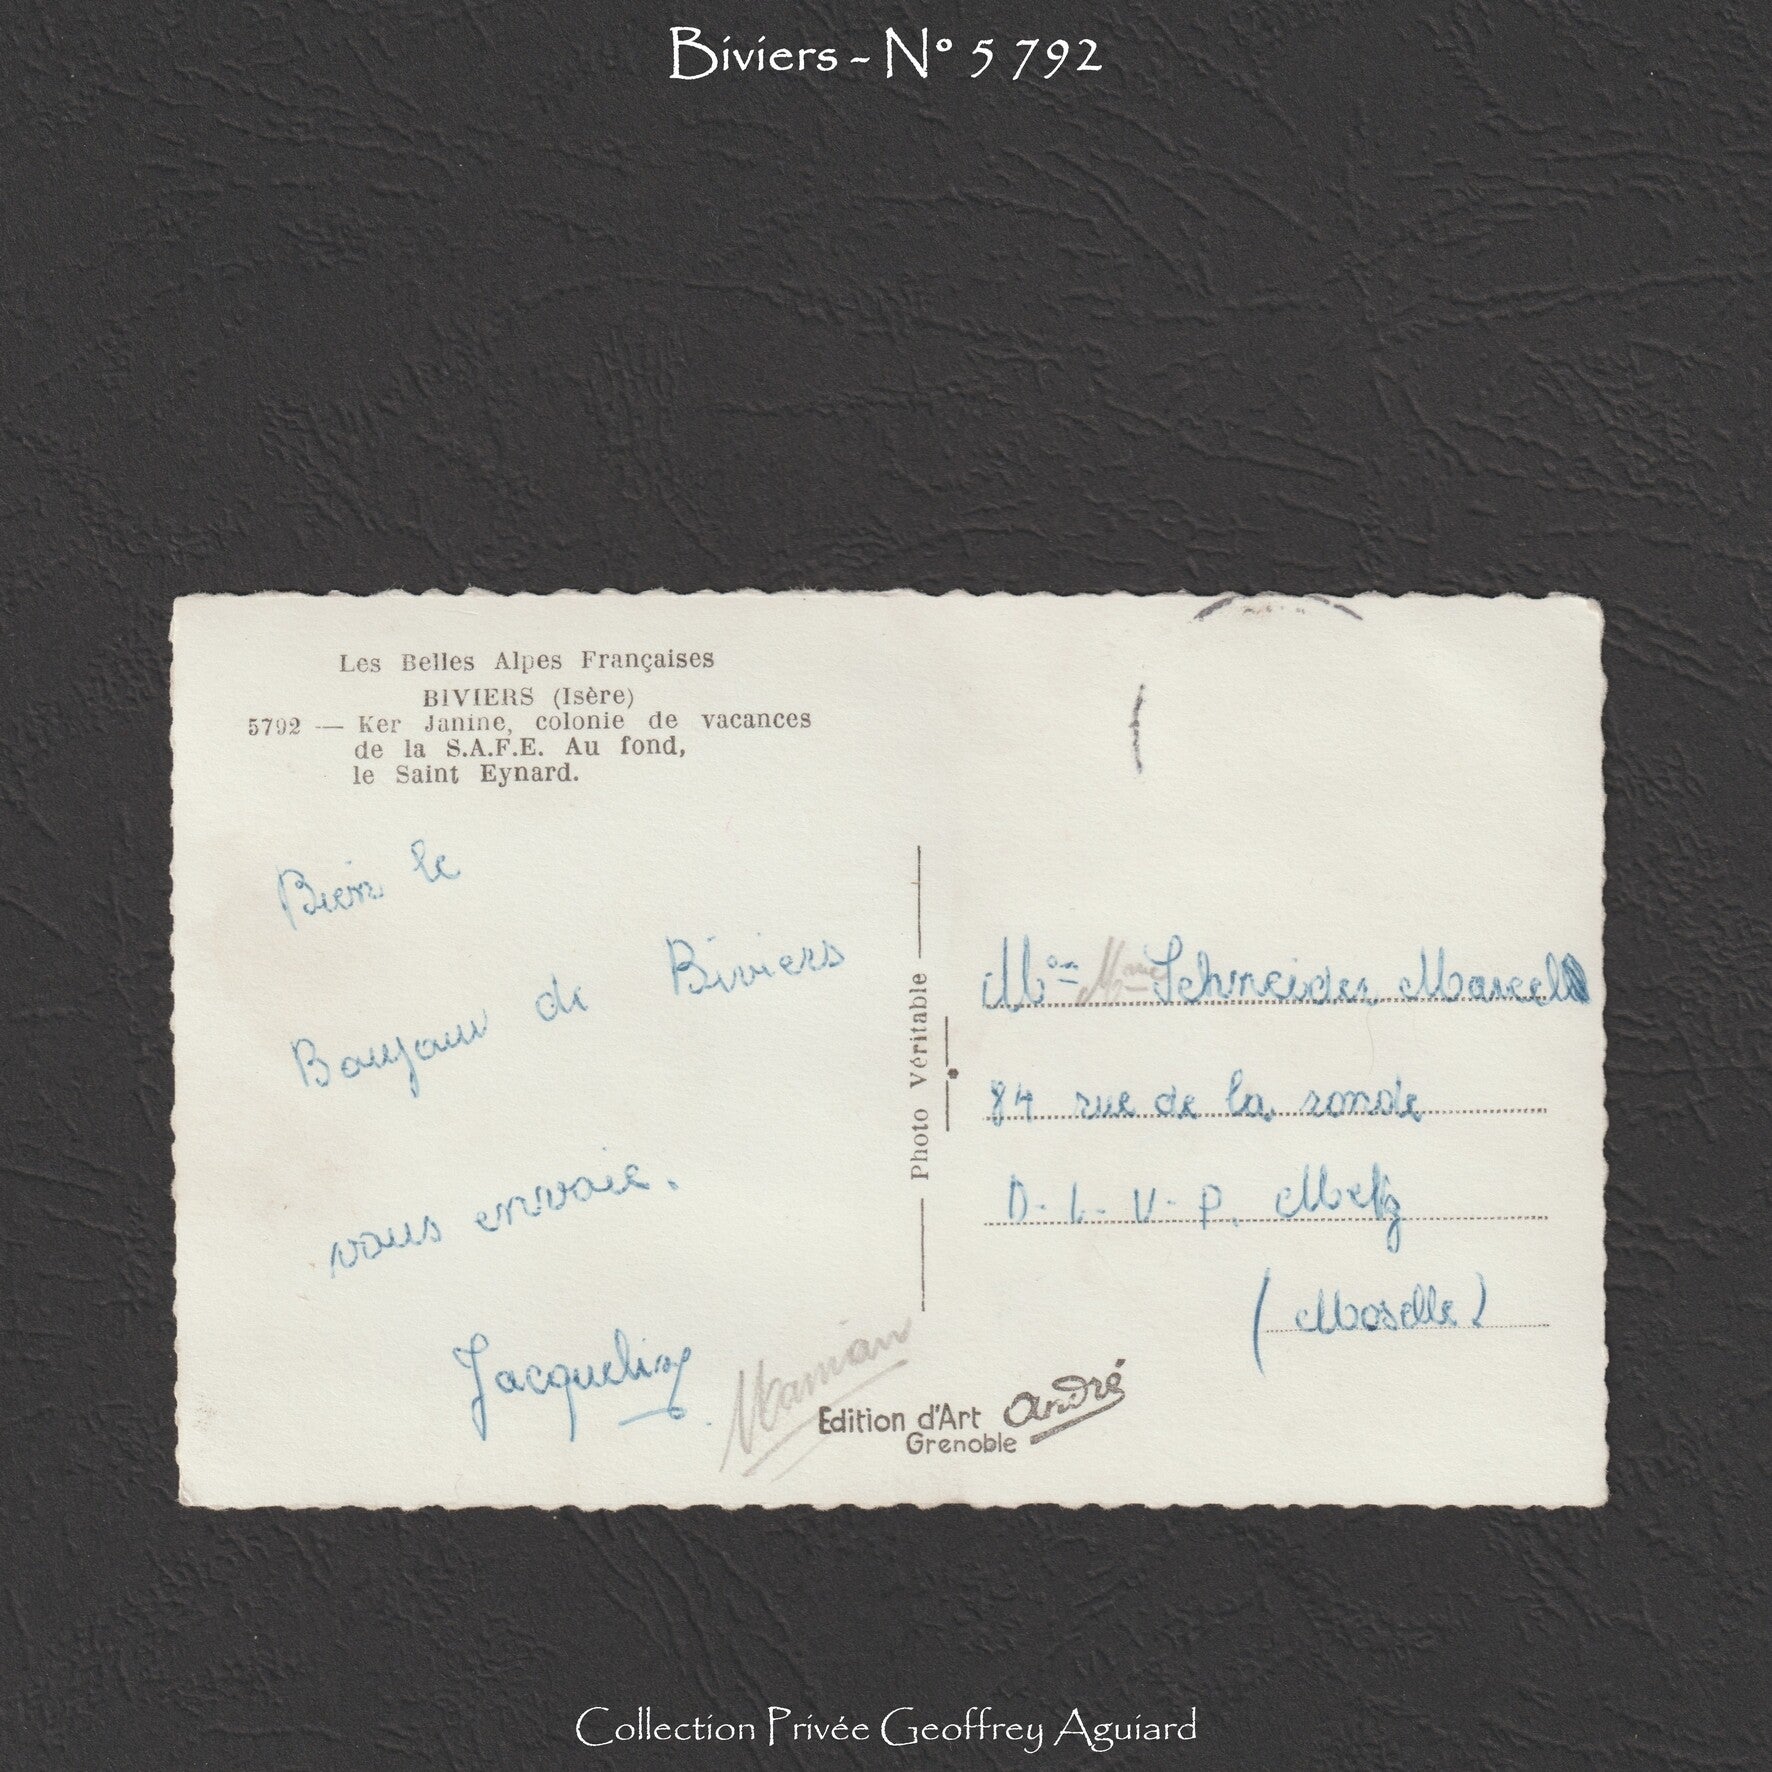 Biviers - N° 5 792
Les Belles Alpes Françaises
BIVIERS (Isère)
5792 — Ker Janine, colonie de vacances
de la S.A.F.E. Au fond,
le Saint Eynard.
Bien le
Bonjour de Biviers
vous envoie.
Jacqueline
Maman
Photo Véritable
Mme Schneider Marcel
84 rue de la ronde
D. L. V. P. Metz
(Moselle)
Edition d'Art André
Grenoble
Collection Privée Geoffrey Aguiard